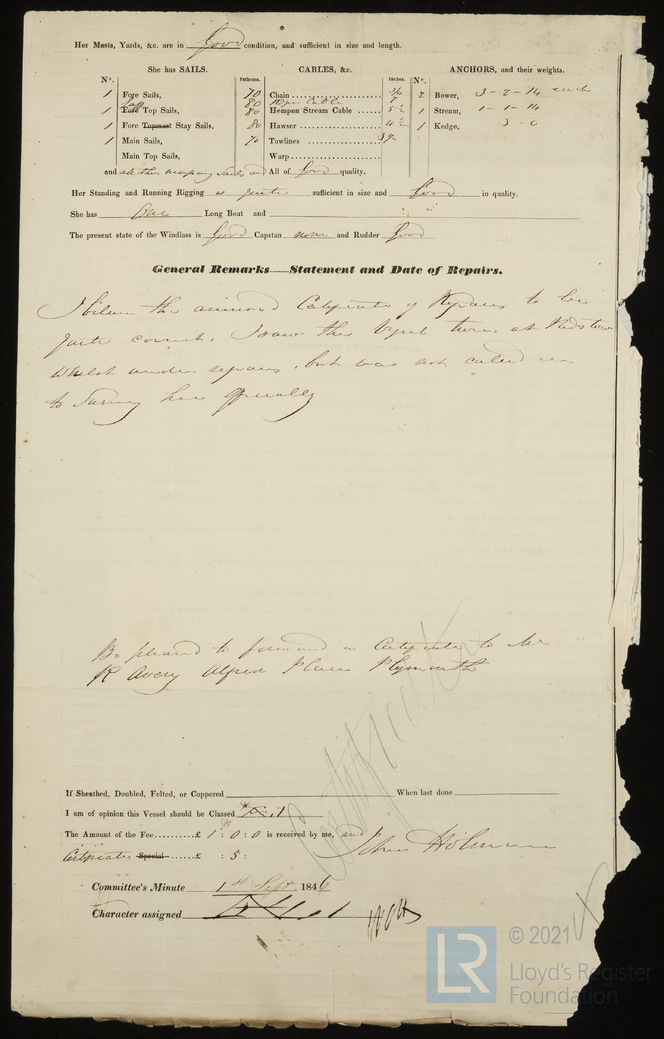 Her Masts, Yards, &c. are in Good condition, and sufficient in size and length.
She has SAILS. CABLES, &c. ANCHORS, and their weights.
N°. Fathoms. Inches. N°.
1 Fore Sails, 70 Chain 2 Bower, 3-2-14 each
1 Top Sails, 80 80 Hempen Stream Cable 1 Stream, 1-1-14
1 Fore Topmast Stay Sails, 80 Hawser 4½ 1 Kedge,
1 Main Sails, 70 Towlines
Main Top Sails, Warp
and all other necessary Sails and All of Good quality.
Her Standing and Running Rigging is quite sufficient in size and Good in quality.
She has One Long Boat and
The present state of the Windlass is Good Capstan none and Rudder Good
General Remarks—Statement and Date of Repairs.
I believe the annexed Certificate of Repairs to be
quite correct. I saw this Vessel twice at Padstow
Whilst under repairs, but was not called in
to Survey her Specially
Be pleased to forward a Certificate to Mr
R Avery Alfred Place Plymouth
If Sheathed, Doubled, Felted, or Coppered When last done
I am of opinion this Vessel should be Classed
The Amount of the Fee £ 1 : 0 : 0 is received by me, and
John Holman
Certificate Special £ : 5 :
Committee's Minute 1st Sept. 1846
Character assigned
LR
© 2021
Lloyd's Register
Foundation